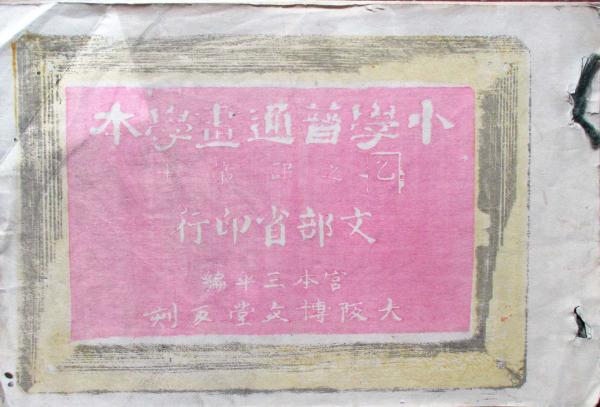 小學普通畫學本
乙之部第十
文部省印行
宮本三平編
大阪博文堂反刻